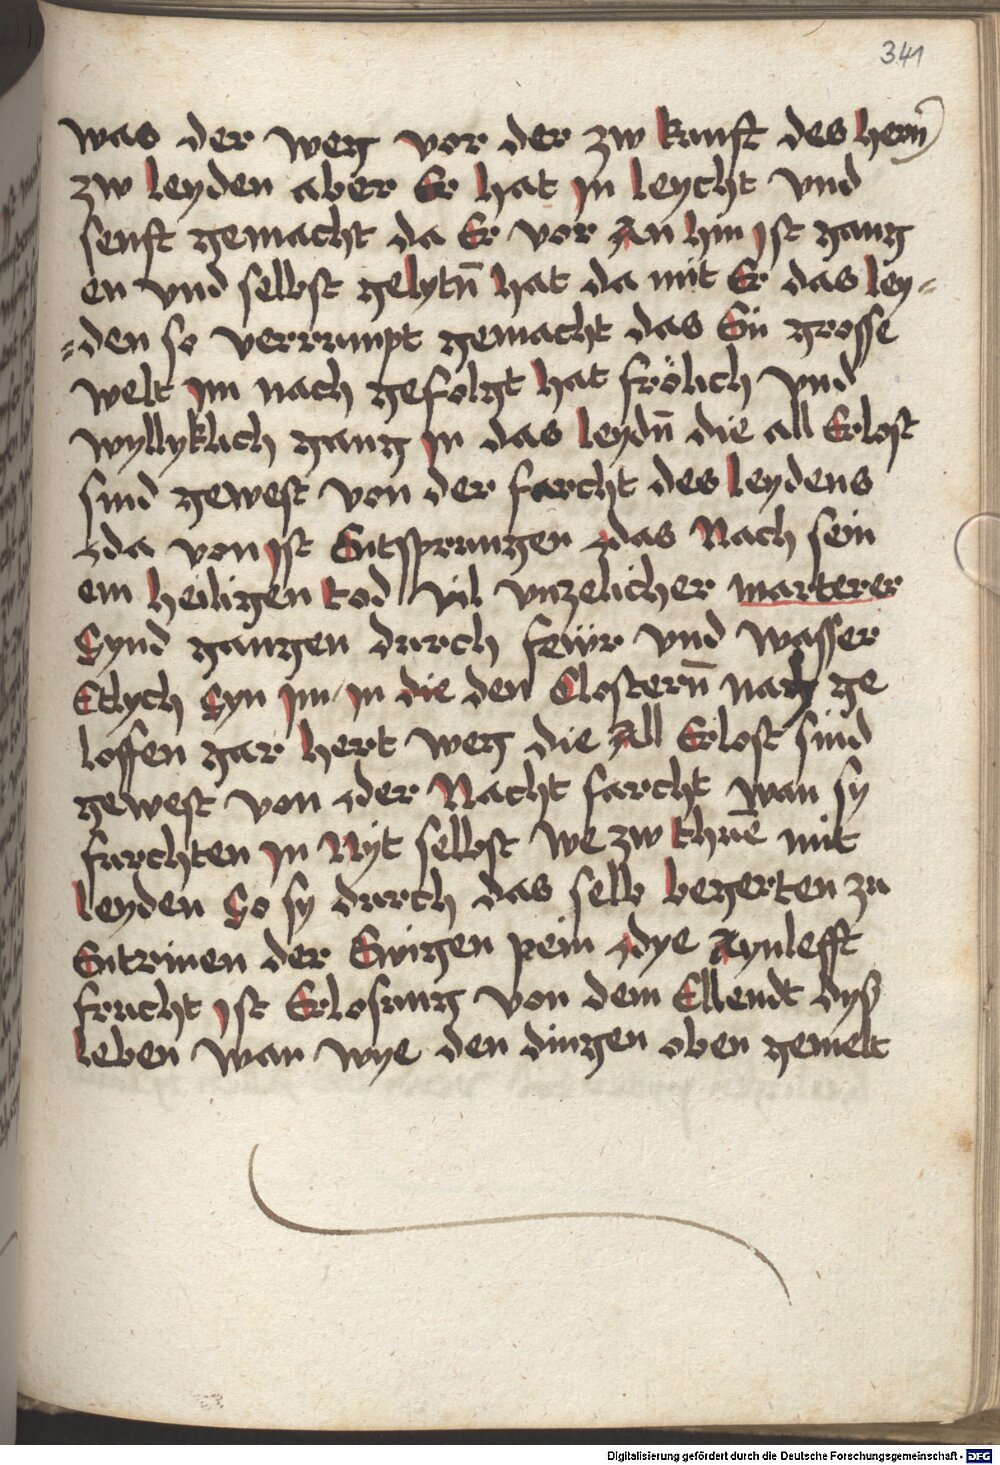 341
was der weg vor der zw kunft des hern
zw leyden aber Er hat in leycht vnd
senft gemacht da Er vor An hin ist gang
en vnd selbst gelytn̄ hat da mit Er das ley=
=den so verrumpt gemacht das Ein grosse
welt im nach gefolgt hat frölich vnd
wyllyklich gang in das leydn̄ die all Erlost
sind gewest von der forcht des leydens
da von ist Entsprungen das Nach sein
em heiligen tod vil vnzelicher marterer
Synd gangen durch feẅr vnd wasser
Etlych Syn im in die den Clostern̄ nach ge
loffen gar hert weg die All Erlost sind
gewest von der Nacht farcht wan sy
furchten in Nyt selbst we zw thuē mit
leyden So sy durch das selb begerten zu
Entrinen der Ewigen pein dye Aynlefft
frucht ist Erlosung von dem Ellendt dyß
leben wan wye den dingen oben gemelt
Digitalisierung gefördert durch die Deutsche Forschungsgemeinschaft - DFG